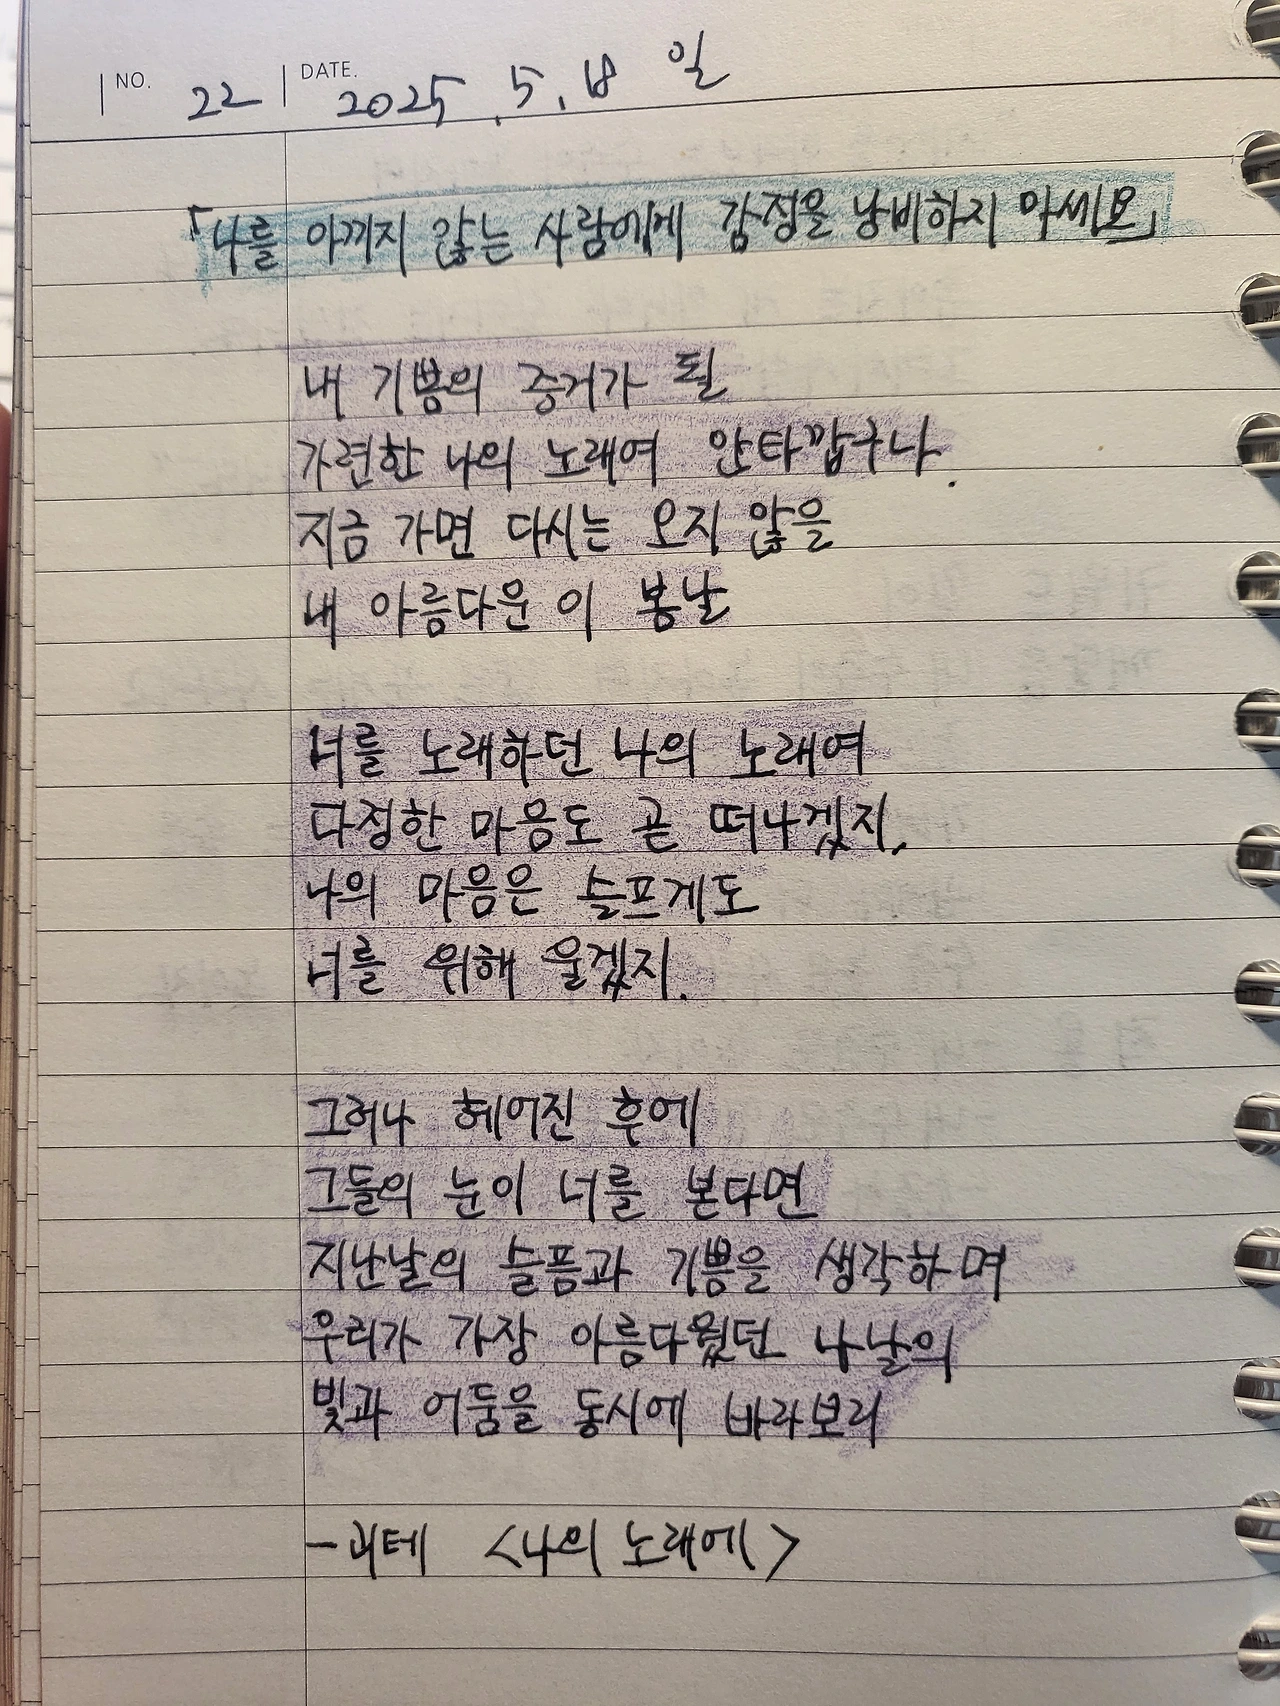 NO. 22 DATE. 2025. 5. 18 일
「나를 아끼지 않는 사람에게 감정을 낭비하지 마세요」
내 기쁨의 증거가 될
가련한 나의 노래여 안타깝구나.
지금 가면 다시는 오지 않을
내 아름다운 이 봄날
너를 노래하던 나의 노래여
다정한 마음도 곧 떠나겠지.
나의 마음은 슬프게도
너를 위해 울겠지.
그러나 헤어진 후에
그들의 눈이 너를 본다면
지난날의 슬픔과 기쁨을 생각하며
우리가 가장 아름다웠던 나날의
빛과 어둠을 동시에 바라보리
- 괴테 <나의 노래에>